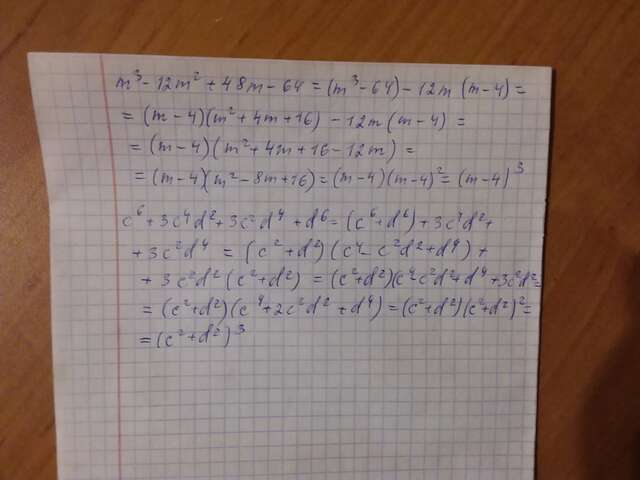 m³ - 12m² + 48m - 64 = (m³ - 64) - 12m (m - 4) =
= (m - 4)(m² + 4m + 16) - 12m (m - 4) =
= (m - 4)(m² + 4m + 16 - 12m) =
= (m - 4)(m² - 8m + 16) = (m - 4)(m - 4)² = (m - 4)³
c⁶ + 3c⁴d² + 3c²d⁴ + d⁶ = (c⁶ + d⁶) + 3c⁴d² +
+ 3c²d⁴ = (c² + d²)(c⁴ - c²d² + d⁴) +
+ 3c²d² (c² + d²) = (c² + d²)(c⁴ - c²d² + d⁴ + 3c²d² =
= (c² + d²)(c⁴ + 2c²d² + d⁴) = (c² + d²)(c² + d²)² =
= (c² + d²)³